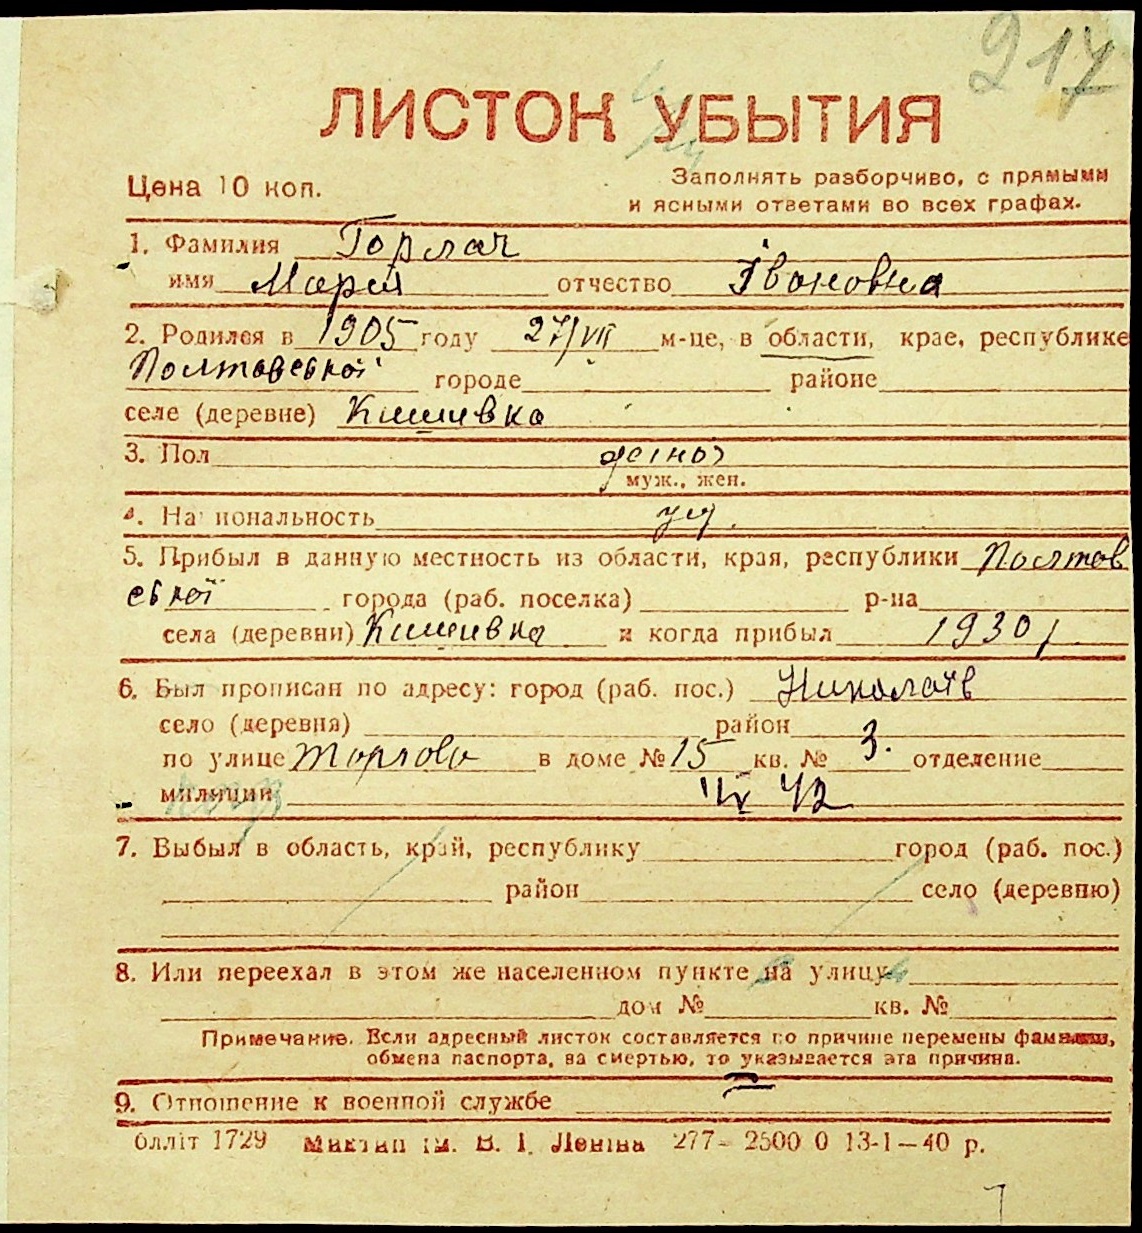 217
ЛИСТОК УБЫТИЯ
Цена 10 коп.
Заполнять разборчиво, с прямыми
и ясными ответами во всех графах.
1. Фамилия Горлач
имя Мария отчество Івановна
2. Родился в 1905 году 27/VII м-це, в области, крае, республике
Полтавської городе районе
селе (деревне) Кишивка
3. Пол жіноч
муж., жен.
4. Национальность укр.
5. Прибыл в данную местность из области, края, республики Полтав
ської города (раб. поселка) р-на
села (деревни) Кишивка и когда прибыл 1930 г.
6. Был прописан по адресу: город (раб. пос.) Николаїв
село (деревня) район
по улице Торгова в доме № 15 кв. № 3. отделение
милиции 42
7. Выбыл в область, край, республику город (раб. пос.)
район село (деревню)
8. Или переехал в этом же населенном пункте на улицу
дом № кв. №
Примечание. Если адресный листок составляется по причине перемены фамилии,
обмена паспорта, за смертью, то указывается эта причина.
9. Отношение к военной службе
блліт 1729 ім. В. І. Леніна 277–2500 0 13-1–40 р.